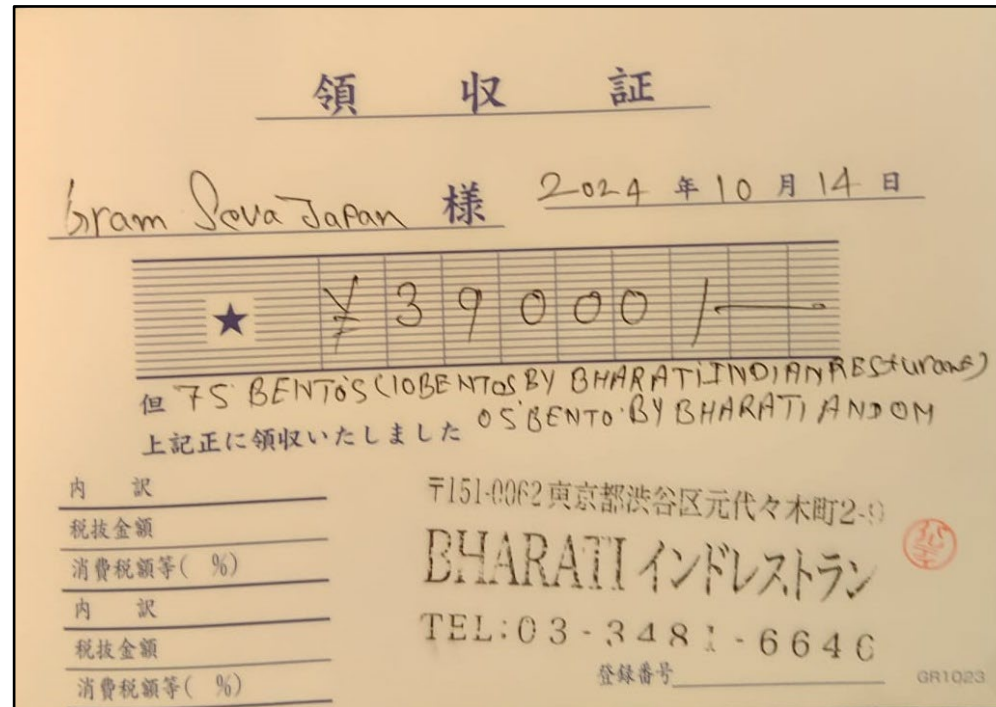 領収証
Gram Seva Japan 様 2024年10月14日
★ ¥39000/-
但 75 BENTO'S (10 BENTOS BY BHARATI INDIAN RESturant)
05 BENTO BY BHARATI AND OM
上記正に領収いたしました
内訳
税抜金額
消費税額等( %)
内訳
税抜金額
消費税額等( %)
〒151-0062 東京都渋谷区元代々木町2-9
BHARATI インドレストラン
TEL:03-3481-6646
登録番号
GR1023